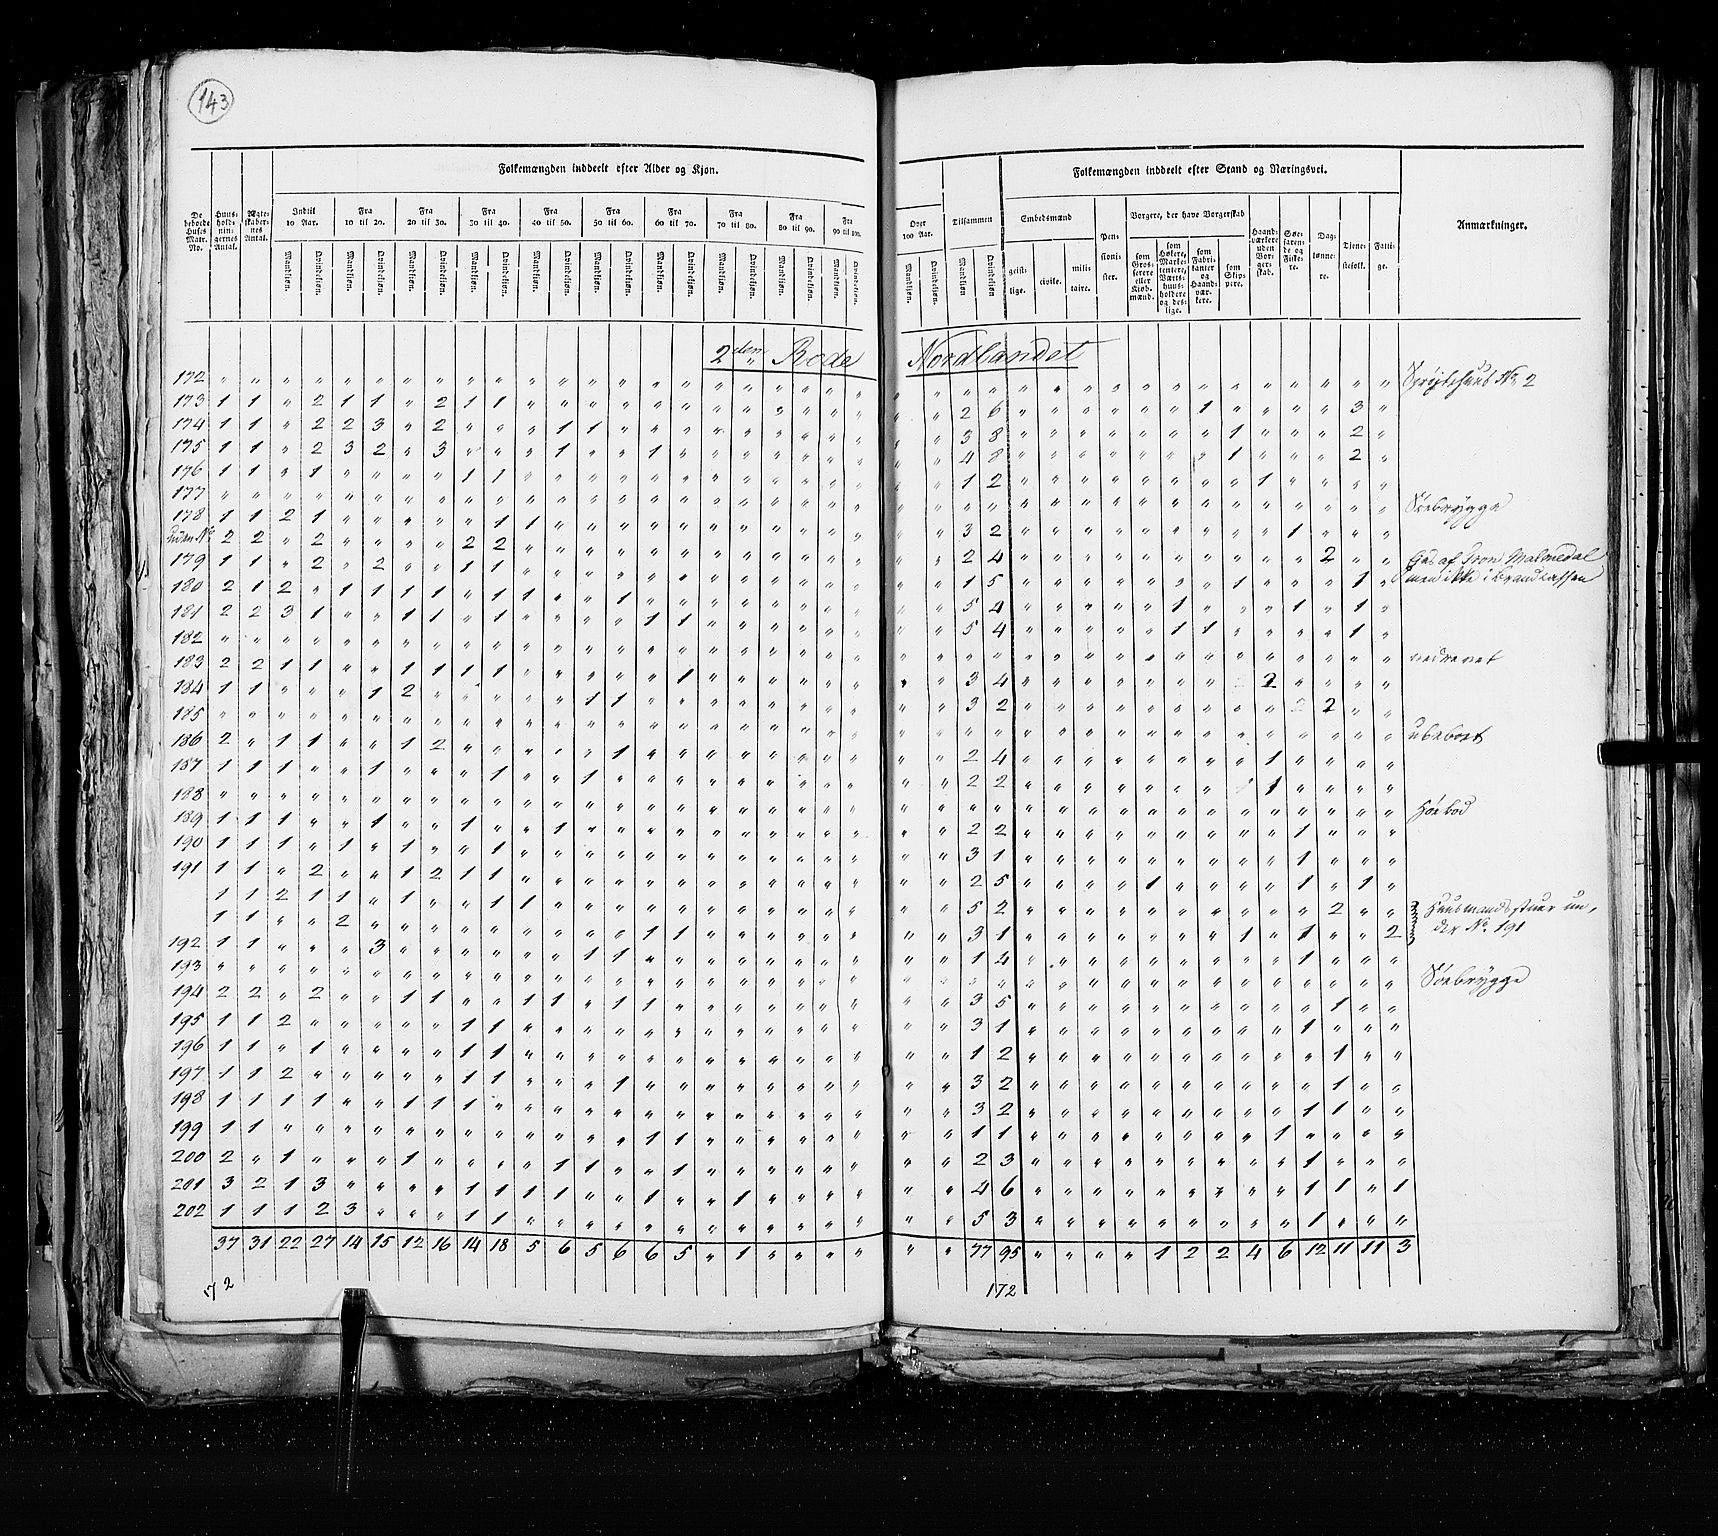 143
Folkemængden inddeelt efter Alder og Kjøn.
Folkemængden inddeelt efter Stand og Næringsvei.
De beboede Huses Matr. No.
Huus-holdningernes Antal.
Ægteskabernes Antal.
Indtil 10 Aar.
Fra 10 til 20.
Fra 20 til 30.
Fra 30 til 40.
Fra 40 til 50.
Fra 50 til 60.
Fra 60 til 70.
Fra 70 til 80.
Fra 80 til 90.
Fra 90 til 100.
Over 100 Aar.
Tilsammen
Mandkjøn. Qvindekjøn.
Embedsmænd
geistlige. civile. militaire.
Pensionister.
Borgere, der have Borgerskab
som Grosserere eller Kjøbmænd.
som Høkere, Marketentere, Værtshuusholdere og deslige.
som Fabrikanter og Haandværkere.
som Skippere.
Haandværkere uden Borgerskab.
Søefarende og Fiskere.
Daglønnere.
Tjenestefolk.
Fattige.
Anmærkninger.
2den Rode Nordlandet
172 Sprøitehuus No 2
173 1 1 " 2 1 1 " 2 1 1 2 6 1 3
174 1 1 " 2 2 3 " 2 " " " 1 1 3 8 1 2
175 1 1 " 2 3 2 " 3 " " " 1 " " 1 4 8 1 2
176 1 1 " 1 " " " " 1 1 1 2 1
177 Søebrygge
178 1 1 2 1 " " " " " 1 1 3 2 1
uden No 2 2 " 2 " " " " 2 2 2 4 2 Huus af Iron Malmedal
179 1 1 " 2 " 2 " " 1 1 1 5 1 1 men ikke i Brandkassen
180 2 1 2 " 1 1 1 1 " 1 1 " " 1 5 4 1 1 1
181 2 2 3 1 " " 1 1 " 1 " " " " 1 1 5 4 1 1 1
182 nedrevet
183 2 2 1 1 " " 1 1 1 1 " " " " " 1 3 4 2
184 1 1 " " " 1 2 " " " " " 1 1 3 2 2
185 ubeboet
186 2 " 1 1 " " 1 2 " " " " " 1 2 4 1
187 1 1 1 " " 1 " " " 1 " " 1 2 2 1
188 Høebod
189 1 1 1 " " 1 " " 1 " " 1 2 2 1
190 1 1 1 " 1 " 1 " " 1 3 1 1
191 1 1 " 2 " " 1 2 1 1 2 5 1 1 1
1 1 2 1 1 " 1 " " 1 1 5 2 2 Huusmandsstuer un-
1 1 " " 2 " " " " " " " " " 1 1 3 1 1 1 2 der No. 191
192 1 1 " " " 3 " " " " " " 1 1 1 4 1
193 Søebrygge
194 2 2 " 2 " " 1 1 " " 1 1 " 1 1 3 5 1
195 1 1 2 " " " " " 1 1 3 1 1
196 1 1 " 1 " " " " 1 1 1 2 1
197 1 1 2 " " " " " 1 1 " " " 1 3 2 1
198 1 1 1 1 " " 1 1 1 3 2 1 1
199 1 1 " " " " " " " " " " " " 1 1 1 1 1
200 2 " 1 " " " 1 " " " " 1 1 " " 1 2 3 1
201 3 2 1 3 " " " " 1 1 1 1 " " 1 " " 1 4 6 1 1 " 1
202 1 1 1 2 3 " " " 1 1 5 3 1
37 31 22 27 14 15 12 16 14 18 5 6 5 6 6 5 " 1 " " " " " " 77 95 " " " " 1 2 2 4 6 12 11 11 3
172